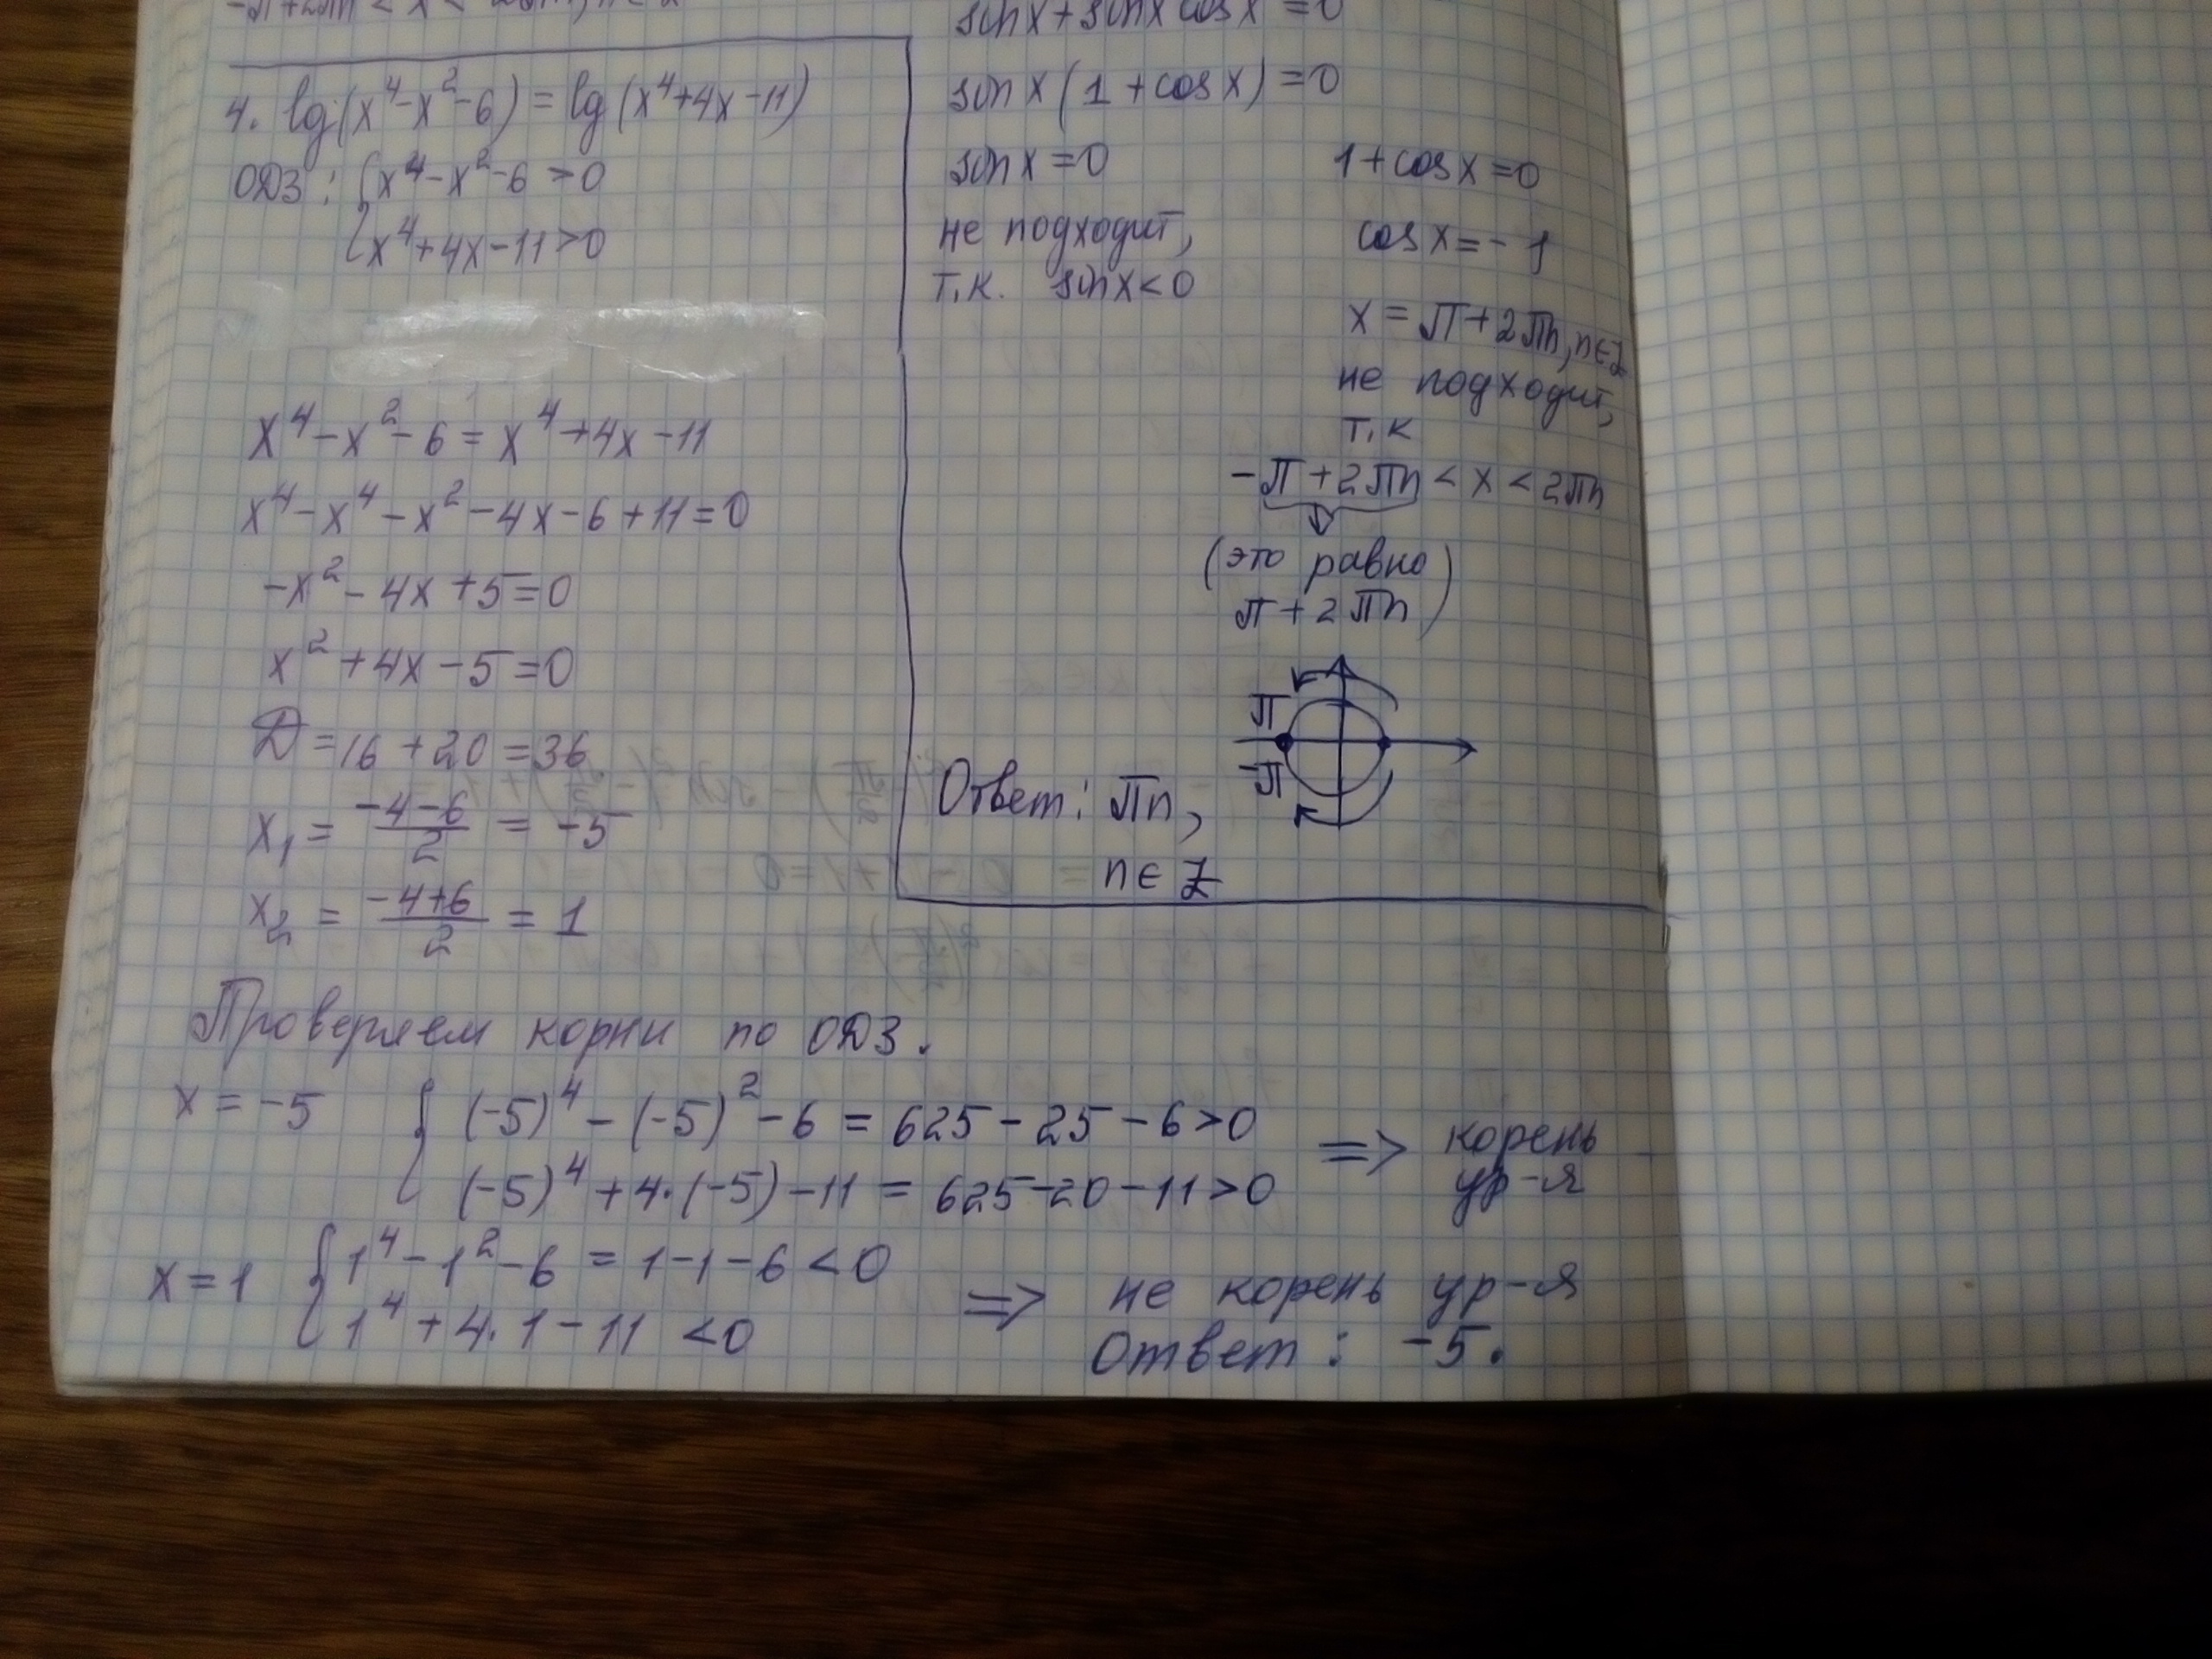 4. lg(x⁴-x²-6) = lg(x⁴+4x-11)
ОДЗ: { x⁴-x²-6 > 0
x⁴+4x-11>0
x⁴-x²-6 = x⁴+4x-11
x⁴-x⁴-x²-4x-6+11=0
-x²-4x+5=0
x²+4x-5=0
D=16+20=36
x₁ = (-4-6)/2 = -5
x₂ = (-4+6)/2 = 1
sin x + sin x cos x = 0
sin x (1 + cos x) = 0
sin x = 0
не подходит,
т.к. sin x < 0
1 + cos x = 0
cos x = -1
x = π + 2πn, n∈Z
не подходит,
т.к
-π + 2πn < x < 2πn
(это равно
π + 2πn)
π
-π
Ответ: πn,
n∈Z
Проверяем корни по ОДЗ.
x = -5 { (-5)⁴ - (-5)² - 6 = 625 - 25 - 6 > 0
(-5)⁴ + 4·(-5) - 11 = 625 - 20 - 11 > 0
=> корень
ур-я
x = 1 { 1⁴ - 1² - 6 = 1-1-6 < 0
1⁴ + 4·1 - 11 < 0
=> не корень ур-я
Ответ: -5.